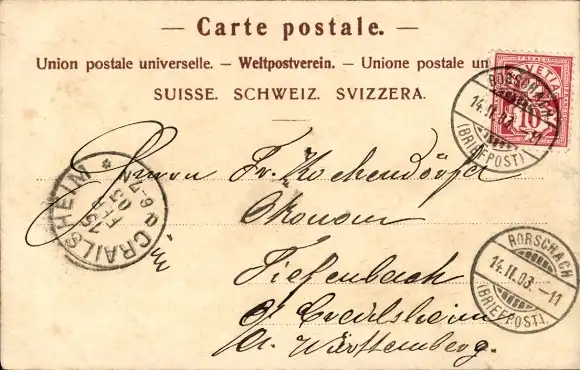 — Carte postale. —
Union postale universelle. — Weltpostverein. — Unione postale un
SUISSE. SCHWEIZ. SVIZZERA.
FRANCO
HELVETIA
10
RORSCHACH
14.II.03.-11
(BRIEFPOST)
CRAILSHEIM
15 FEB 03
6-7
Herrn Fr. Hochendörfer
Ökonom
in
Tiefenbach
O/A Crailsheim
Württemberg.
RORSCHACH
14.II.03.-11
(BRIEFPOST).